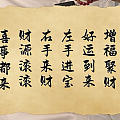 增福聚财
好运到来
左手进宝
右手来财
财源滚滚
喜事都来